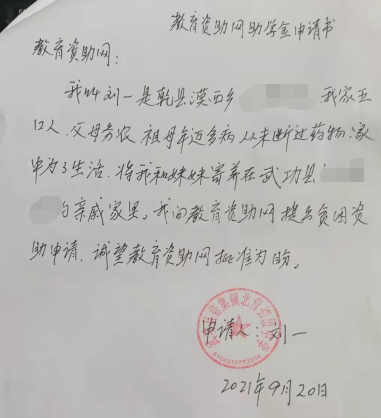 教育资助网助学金申请书
教育资助网：
我叫刘一是乾县漠西乡 我家五
口人，父母务农，祖母年迈多病从未断过药物，家
中为了生活，将我和妹妹寄养在武功县
的亲戚家里。我向教育资助网提出贫困资
助申请，诚望教育资助网批准为盼。
申请人：刘一
2021年9月20日